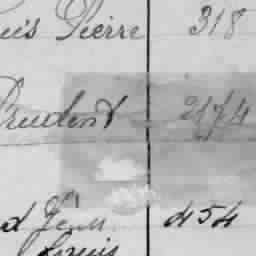 uis Pierre 318
Prudent 2174
d Jean 454
Louis